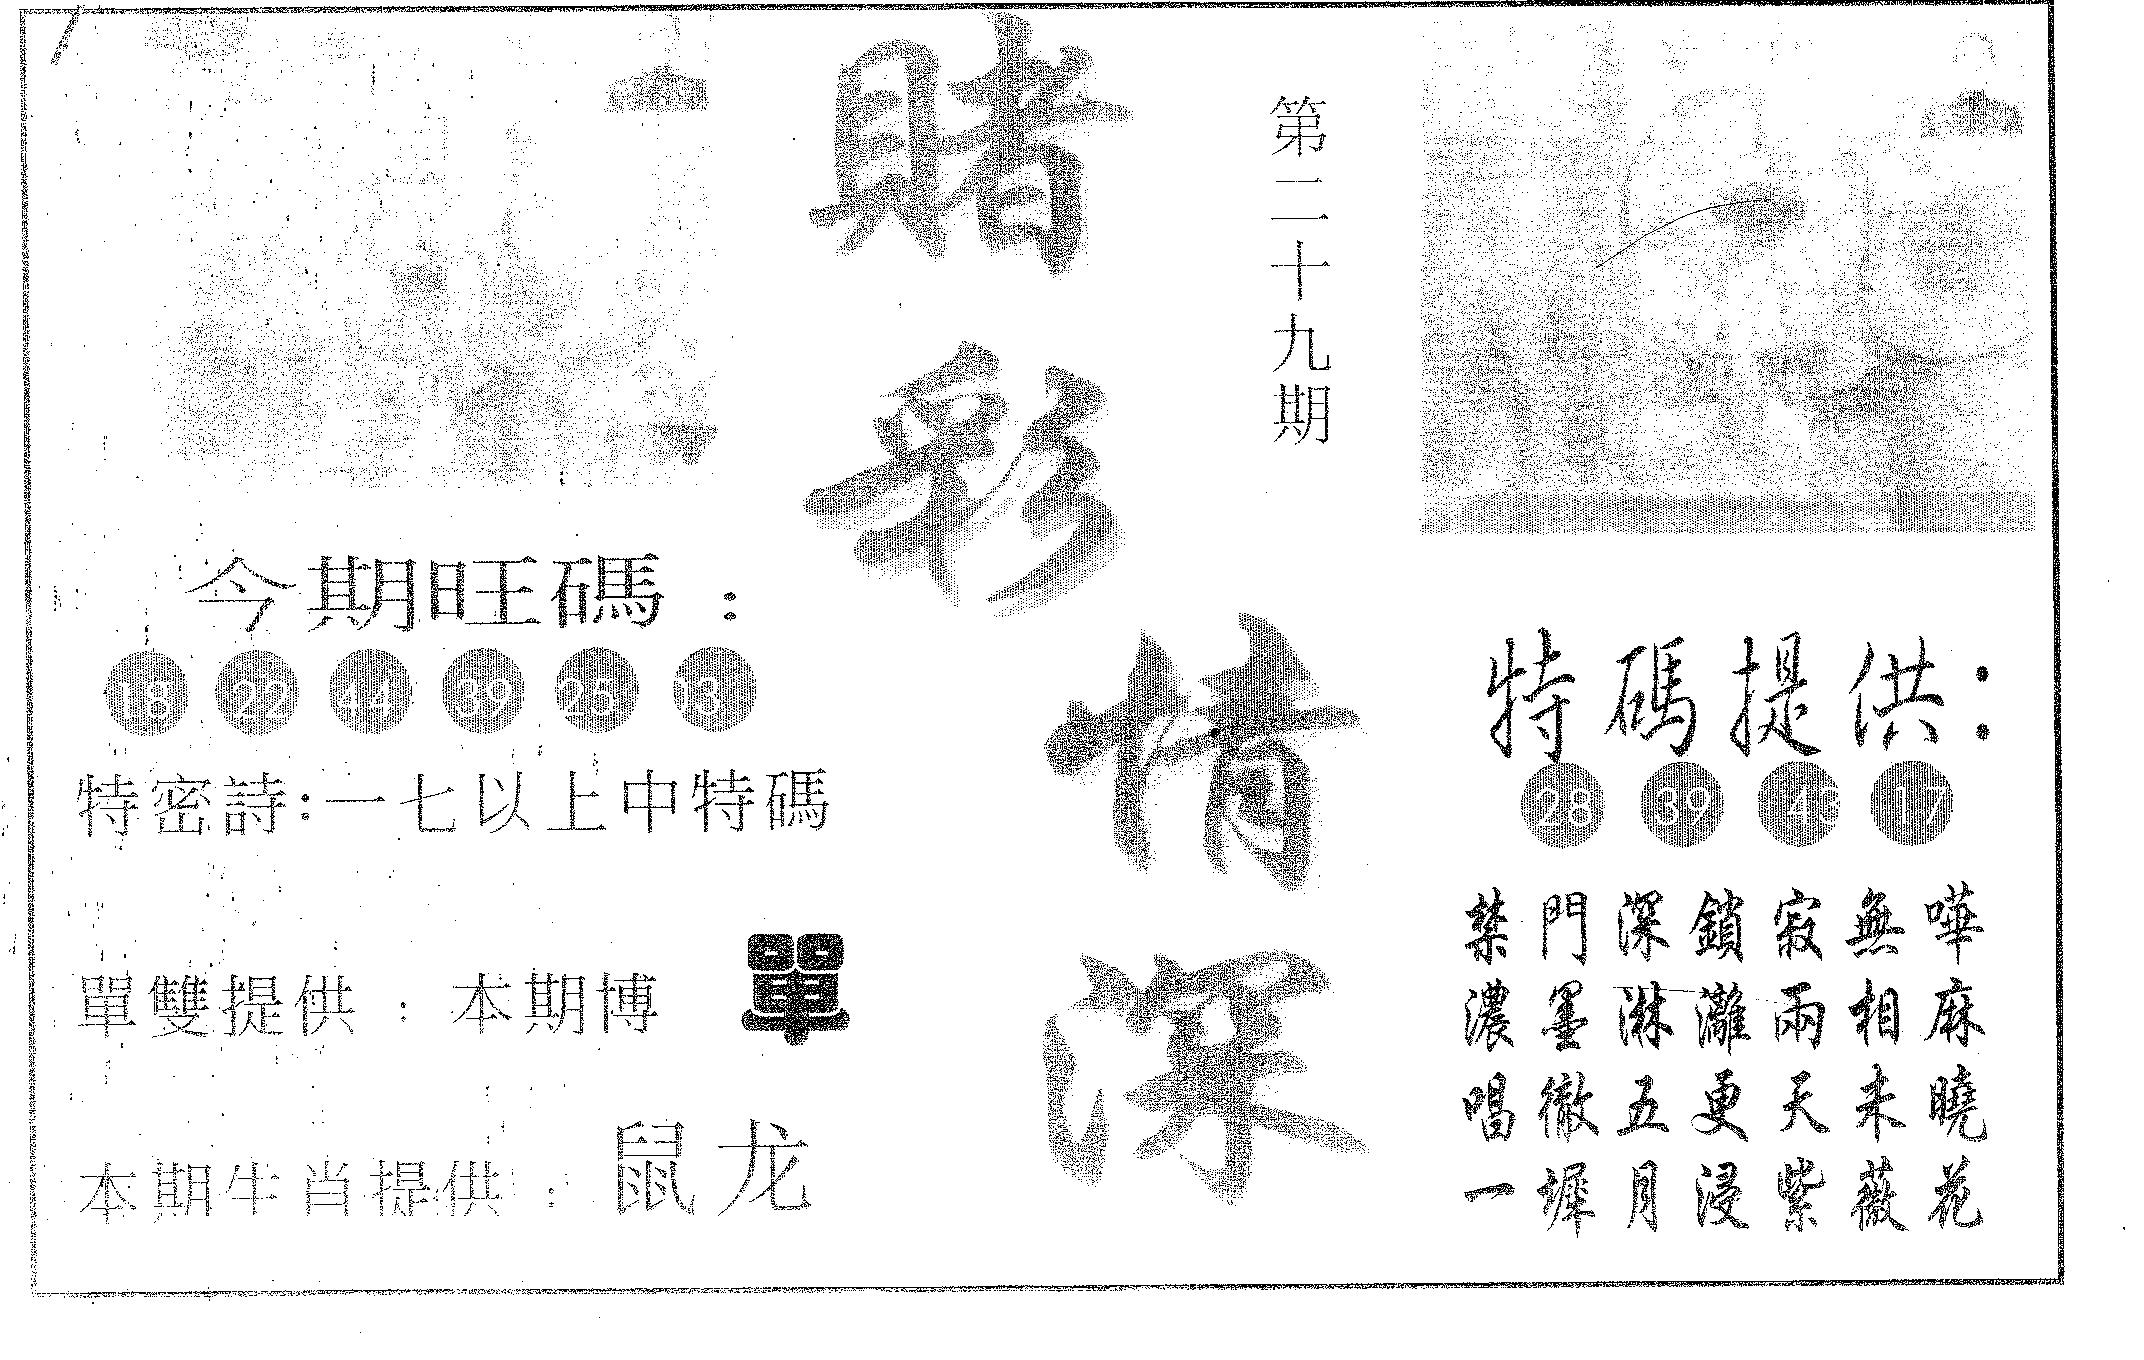 賭彩情深
第二十九期
今期旺碼：
18 22 44 39 25 03
特密詩:一七以上中特碼
單雙提供：本期博 單
本期生肖提供：鼠龙
特碼提供：
28 39 43 17
禁門深鎖寂無嘩
濃墨淋灕兩相麻
唱徹五更天未曉
一墀月浸紫薇花